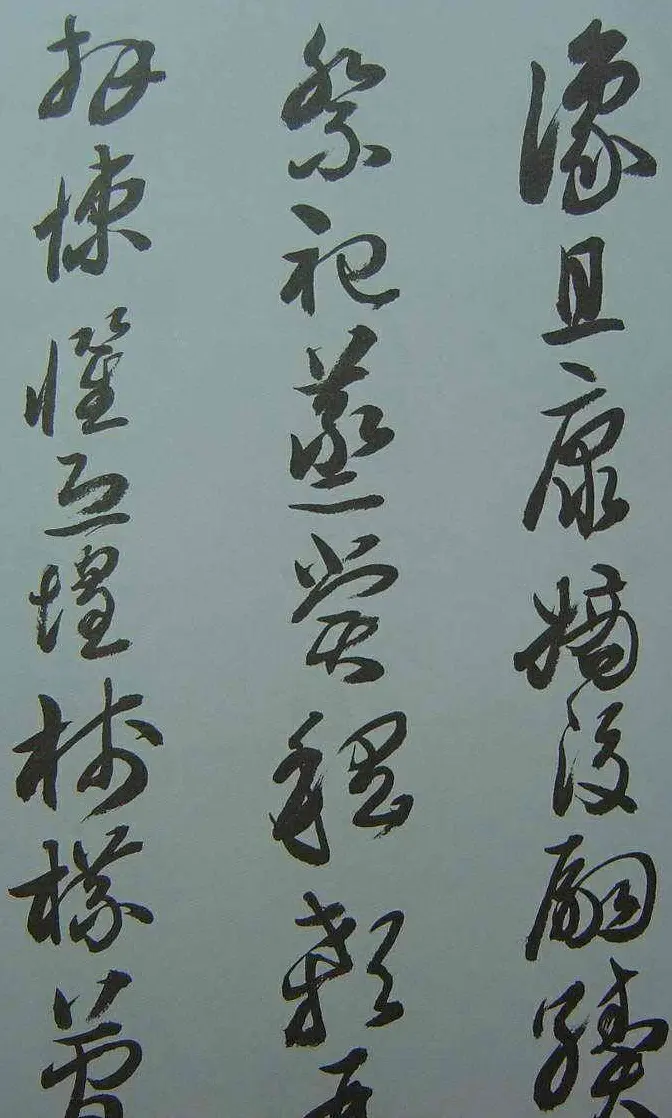 豫且康嫡後嗣續
祭祀蒸嘗稽顙再
拜悚懼恐惶牋牒簡